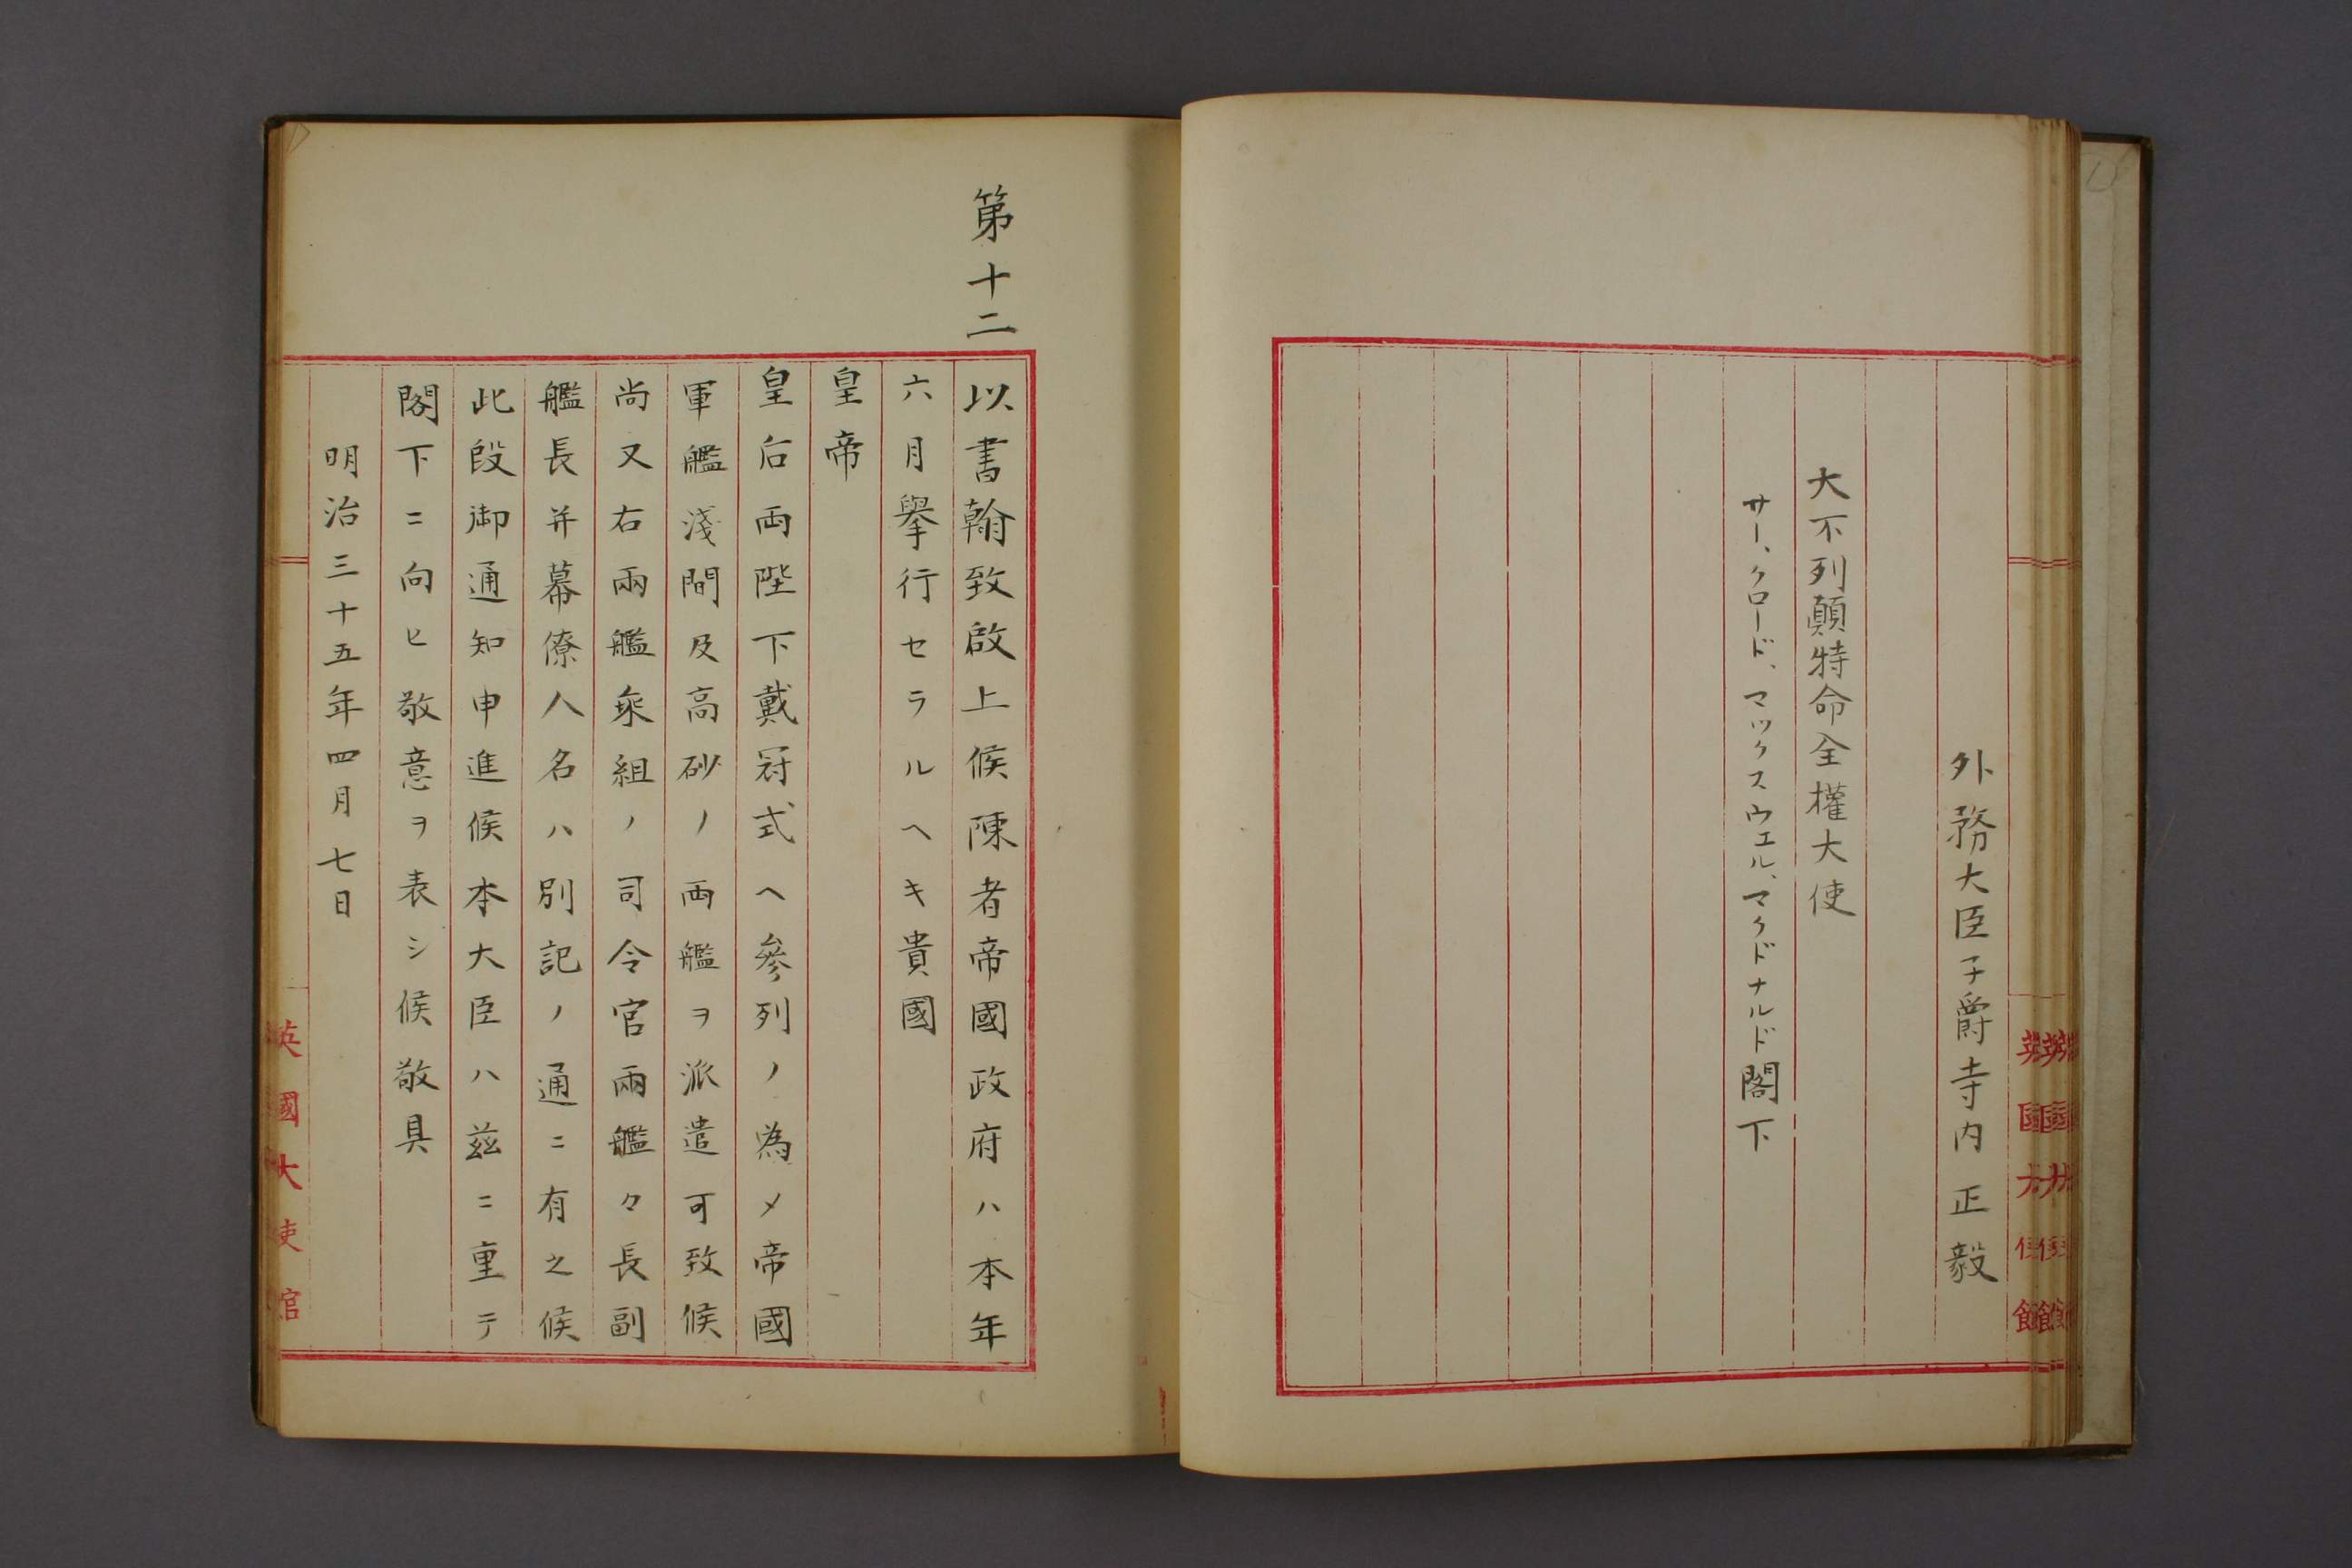 外務大臣子爵寺内正毅
大不列顛特命全權大使
サー、クロード、マックスウエル、マクドナルド閣下
第十二
以書翰致啟上候陳者帝國政府ハ本年
六月擧行セラルヘキ貴國
皇帝
皇后両陛下戴冠式ヘ參列ノ為メ帝國
軍艦淺間及高砂ノ両艦ヲ派遣可致候
尚又右兩艦乘組ノ司令官兩艦々長副
艦長并幕僚人名ハ別記ノ通ニ有之候
此段御通知申進候本大臣ハ茲ニ重テ
閣下ニ向ヒ敬意ヲ表シ候敬具
明治三十五年四月七日
英國大使館